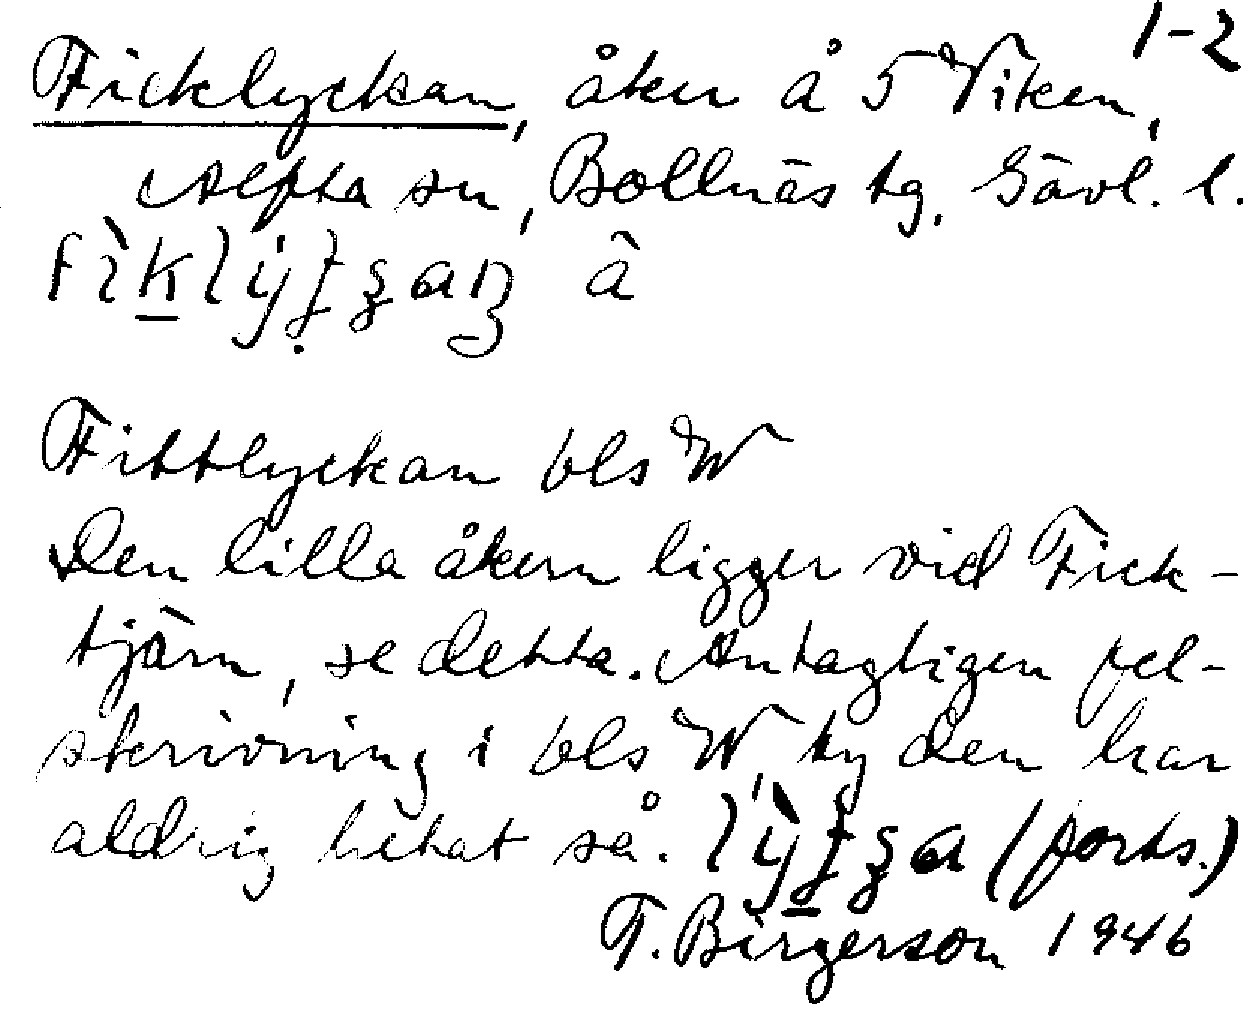 1-2
Ficklyckan, åker å 5 Viken,
Alfta sn, Bollnäs tg. Gävl. l.
Fittlyckan bls W
Den lilla åkern ligger vid Fick-
tjärn, se detta. Antagligen fel-
skrivning i bls W, ty den har
aldrig hetat så. (forts.)
T. Birgerson 1946